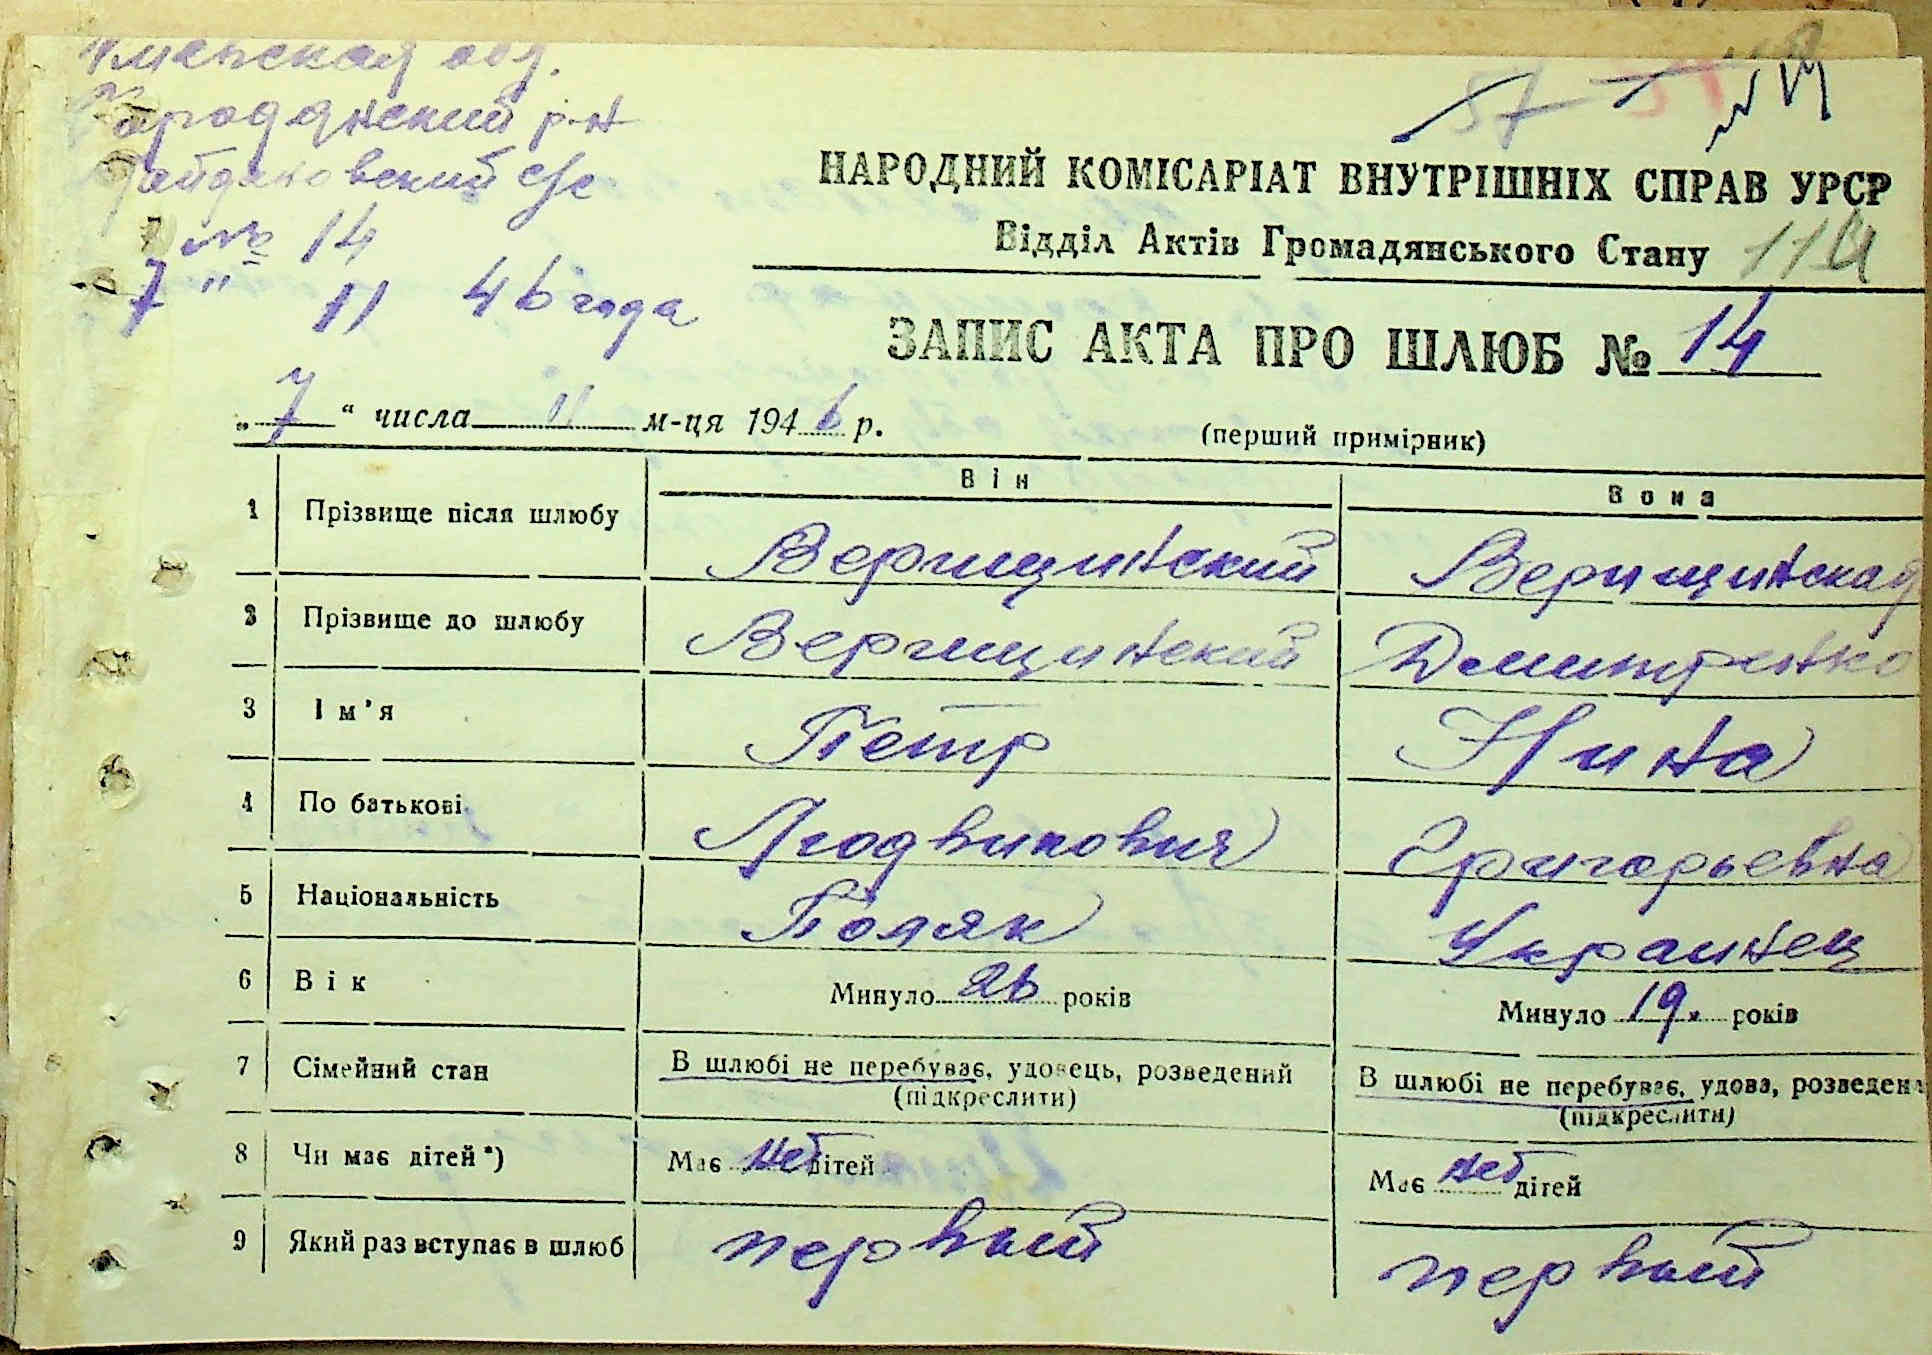 обл.
Бородянский р-н
с/с
№ 14
7 " 11 46 года
НАРОДНИЙ КОМІСАРІАТ ВНУТРІШНІХ СПРАВ УРСР
Відділ Актів Громадянського Стану 114
ЗАПИС АКТА ПРО ШЛЮБ № 14
„ 7 “ числа 11 м-ця 1946 р. (перший примірник)
Він Вона
1 Прізвище після шлюбу Верищинский Верищинская
2 Прізвище до шлюбу Верищинский Дмитренко
3 Ім'я Петр Нина
4 По батькові Людвикович Григорьевна
5 Національність Поляк Украинец
6 Вік Минуло 26 років Минуло 19. років
7 Сімейний стан В шлюбі не перебуває, удовець, розведений В шлюбі не перебуває, удова, розведена
(підкреслити) (підкреслити)
8 Чи має дітей *) Має нет дітей Має нет дітей
9 Який раз вступає в шлюб первый первый